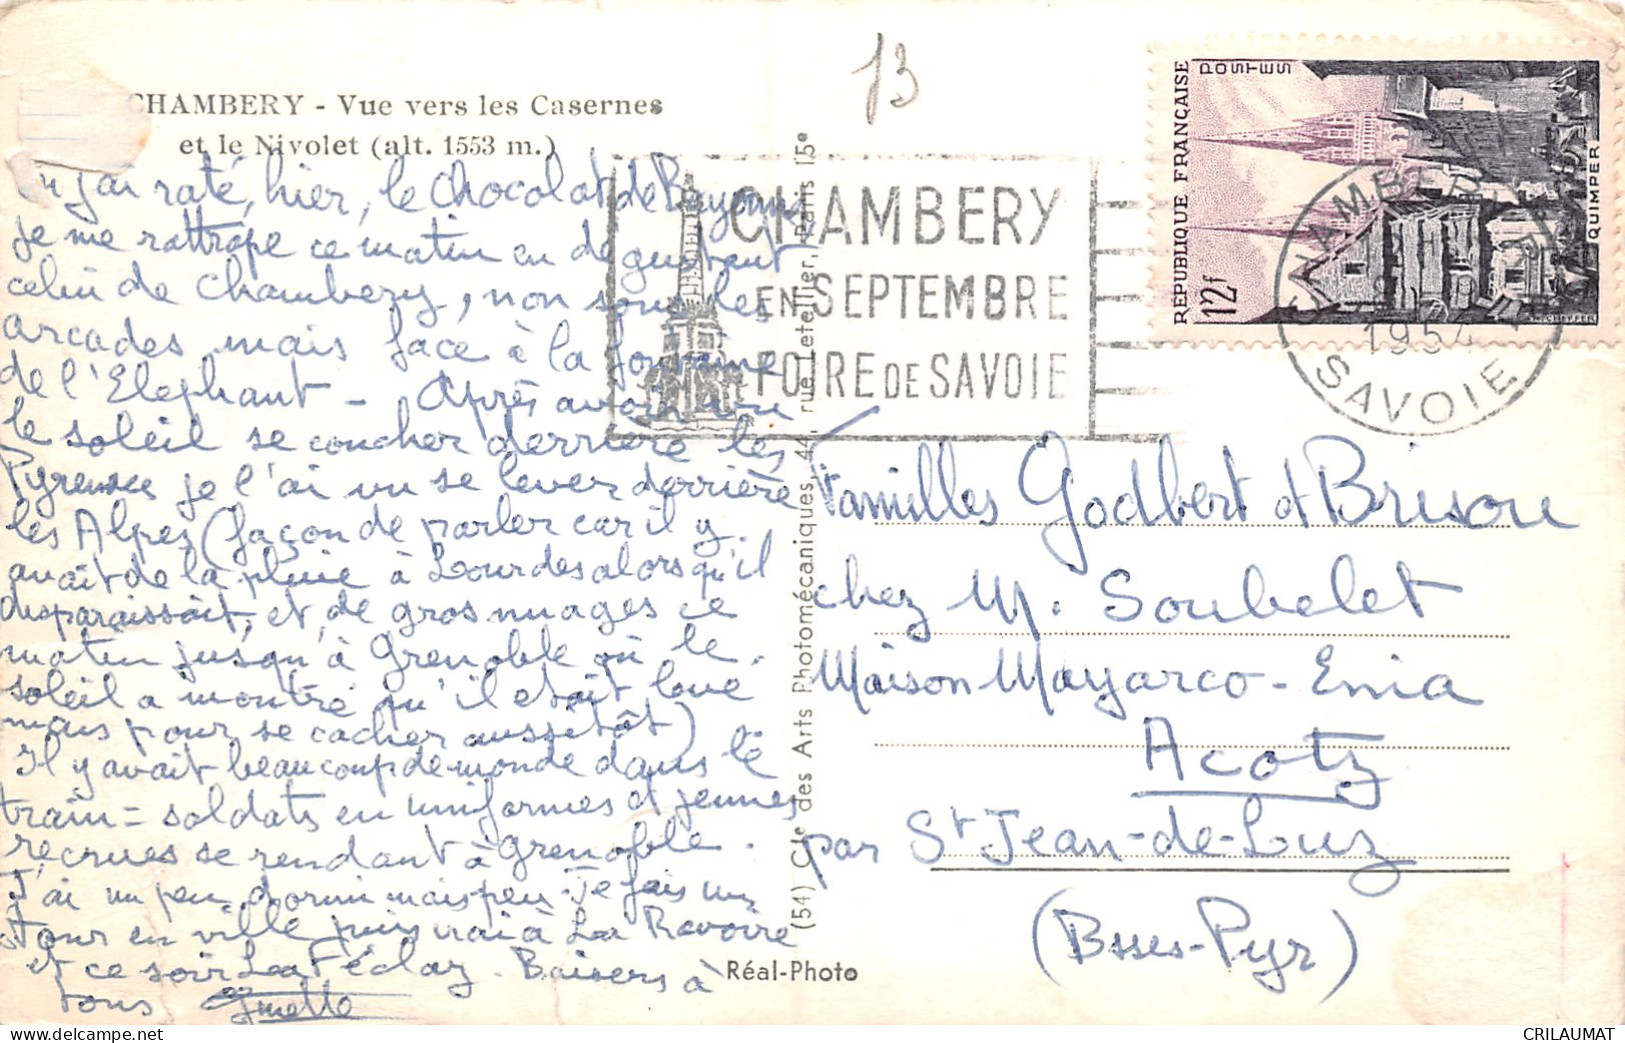 CHAMBERY - Vue vers les Casernes
et le Nivolet (alt. 1553 m.)
13
j'ai raté, hier, le chocolat de Bayonne
je me rattrape ce matin en dégustant
celui de Chambery, non sous les
arcades mais face à la fontaine
de l'Elephant - Après avoir vu
le soleil se coucher derrière les
Pyrenees je l'ai vu se lever derrière
les Alpes (façon de parler car il y
avait de la pluie à Lourdes alors qu'il
disparaissait, et de gros nuages ce
matin jusqu'à Grenoble où le
soleil a montré qu'il etait levé
mais pour se cacher aussitôt)
Il y avait beaucoup de monde dans le
train = soldats en uniformes et jeunes
recrues se rendant à Grenoble.
J'ai un peu dormi mais peu. Je fais un
tour en ville puis irai à La Ravoire
et ce soir La Féclaz. Baisers à
tous Ginette
CHAMBERY
EN SEPTEMBRE
FOIRE DE SAVOIE
RÉPUBLIQUE FRANÇAISE
POSTES
12f
QUIMPER
CHAMBERY
1954
SAVOIE
(54) Cie des Arts Photomécaniques, 44, rue Letellier, Paris 15e
Réal-Photo
Familles Godbert et Brisou
chez M. Soubelet
Maison Mayarco-Enia
Acotz
par St Jean-de-Luz
(Bsses-Pyr)
CRILAUMAT